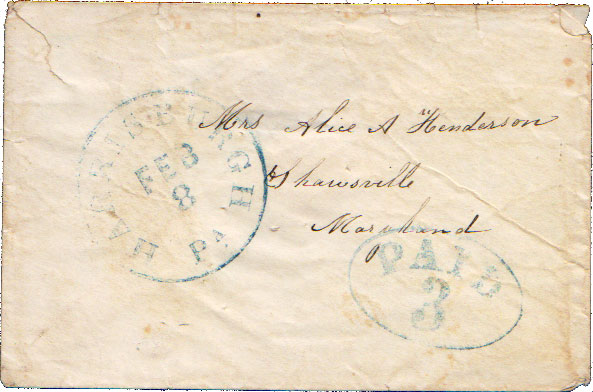 HARRISBURGH PA
FEB
8
Mrs Alice A Henderson
Shawsville
Maryland
PAID
3